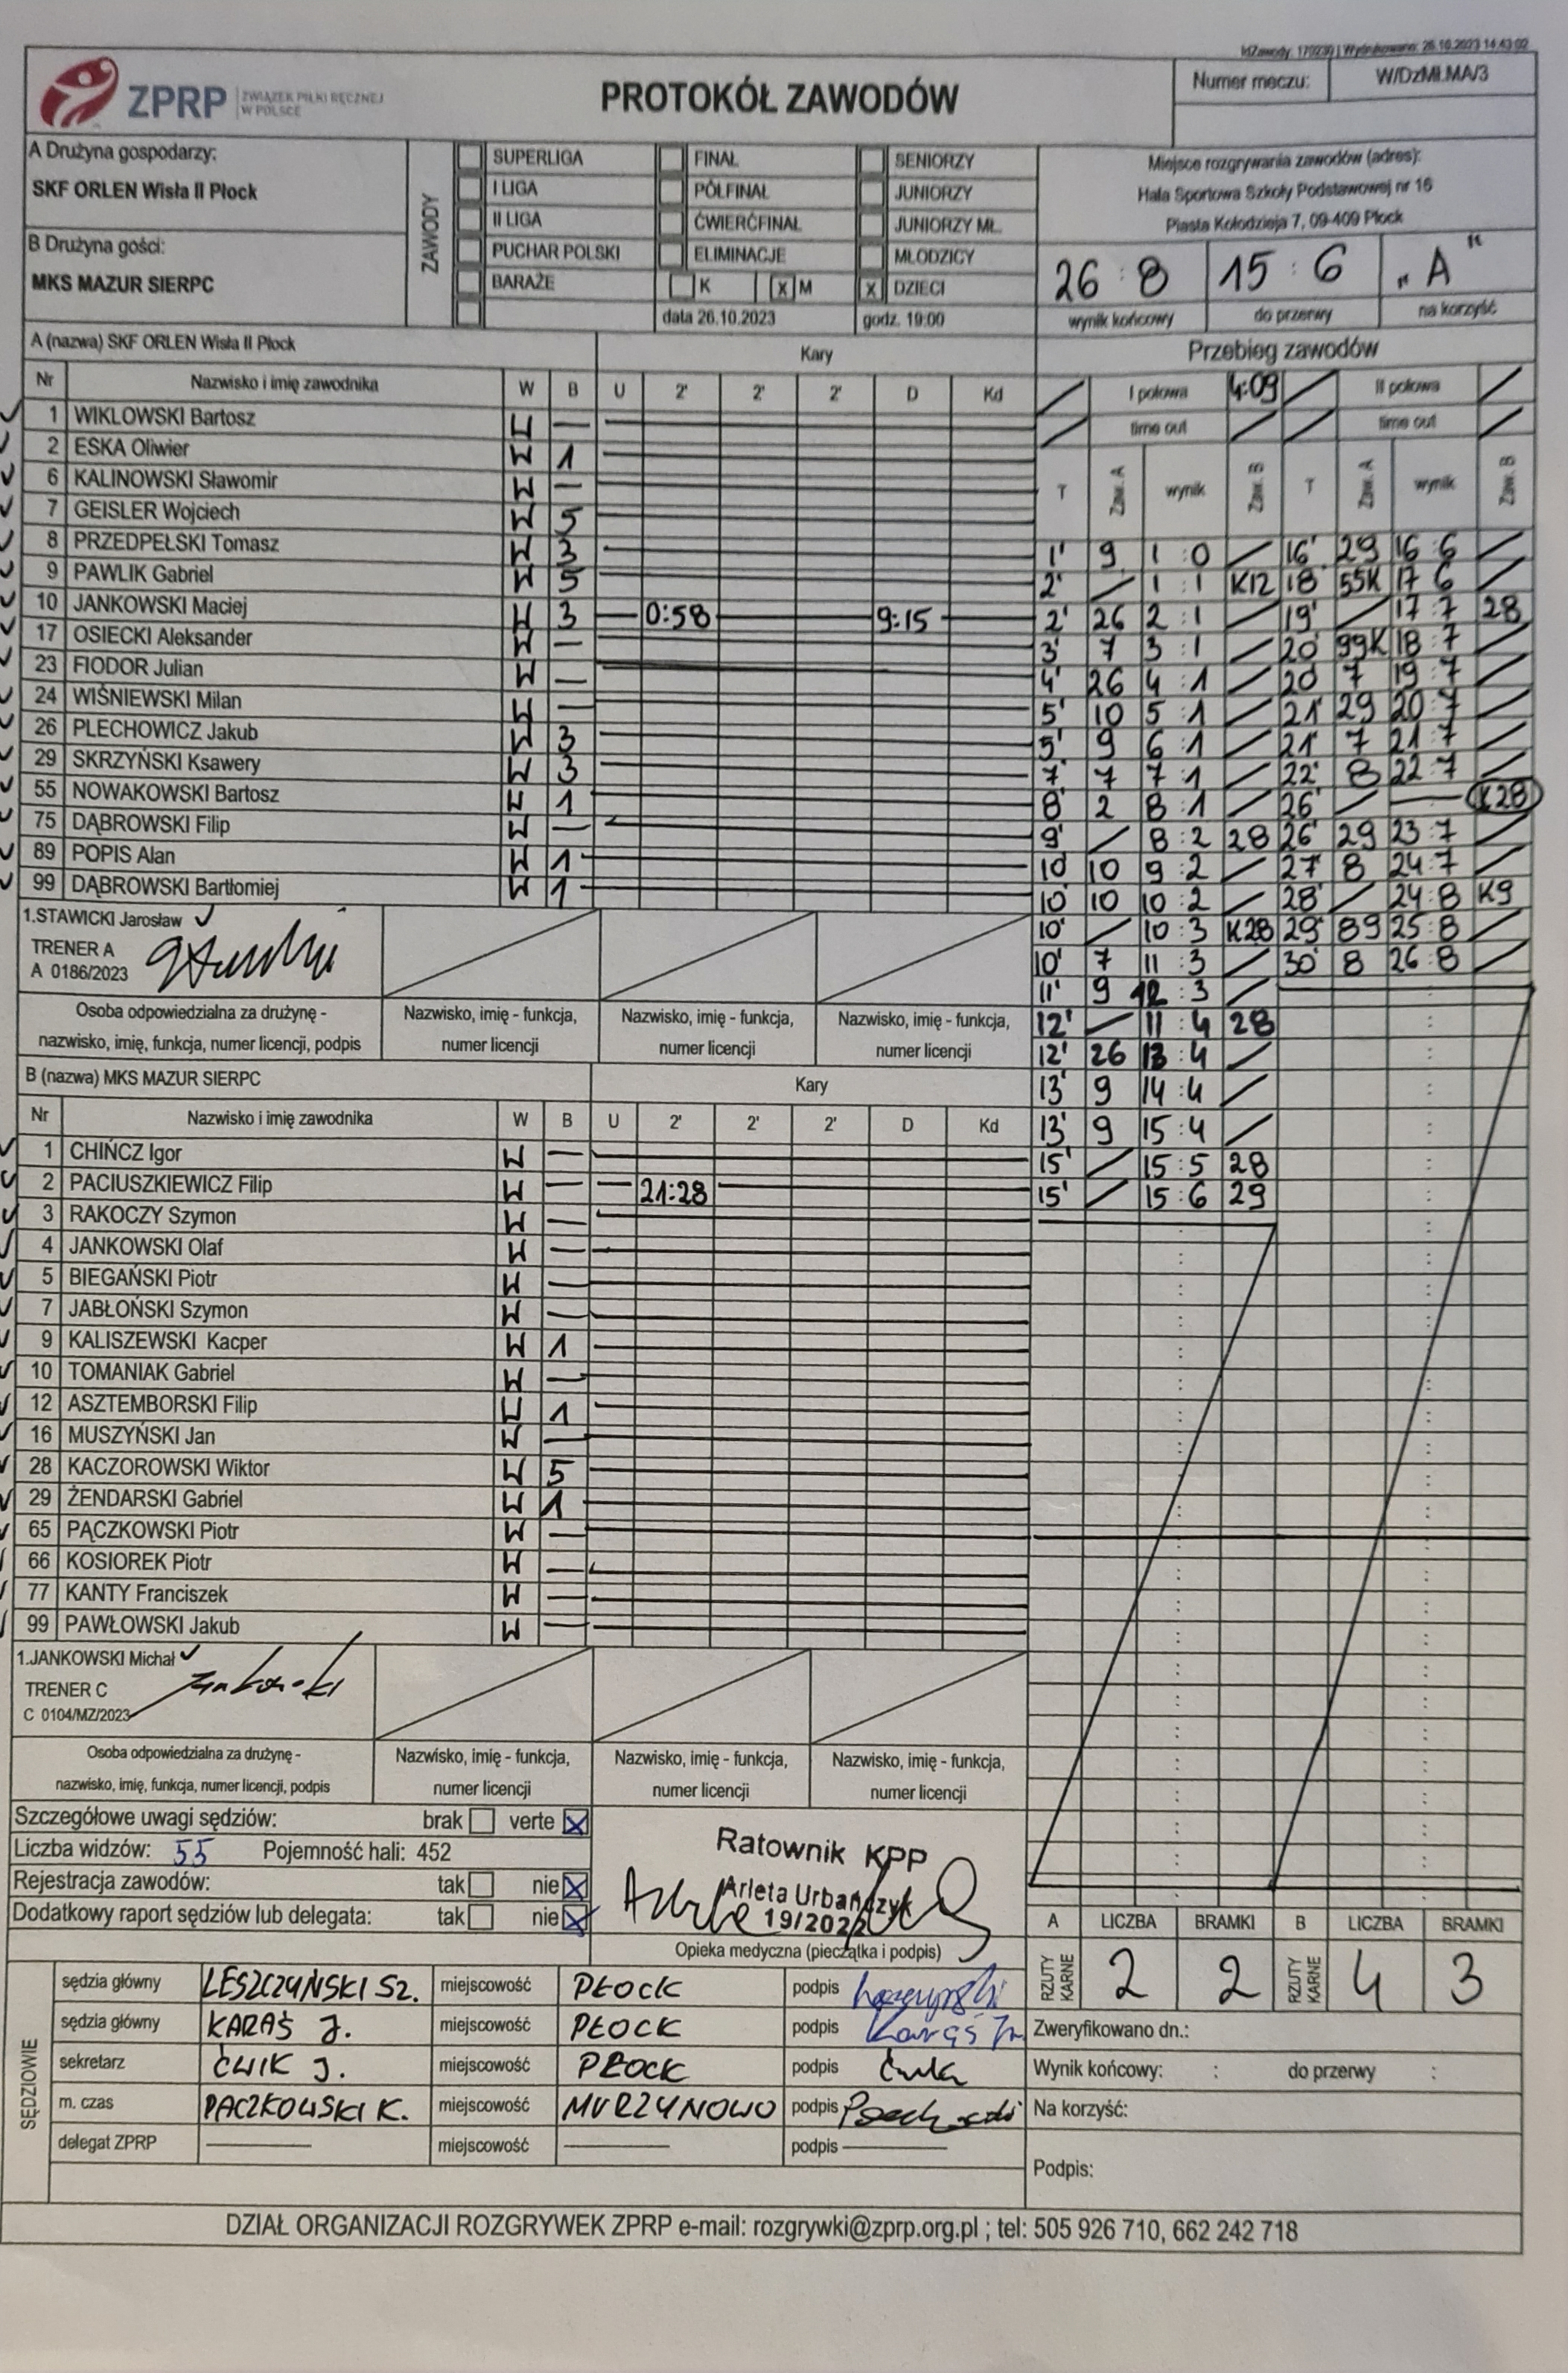 IdZawody: 170230 | Wydrukowano: 26.10.2023 14:43:02
ZPRP ZWIĄZEK PIŁKI RĘCZNEJ W POLSCE
PROTOKÓŁ ZAWODÓW
Numer meczu: W/DzMł.MA/3
A Drużyna gospodarzy:
SKF ORLEN Wisła II Płock
B Drużyna gości:
MKS MAZUR SIERPC
ZAWODY
SUPERLIGA FINAŁ SENIORZY
I LIGA PÓŁFINAŁ JUNIORZY
II LIGA ĆWIERĆFINAŁ JUNIORZY MŁ.
PUCHAR POLSKI ELIMINACJE MŁODZICY
BARAŻE K X M X DZIECI
data 26.10.2023 godz. 19:00
Miejsce rozgrywania zawodów (adres):
Hala Sportowa Szkoły Podstawowej nr 16
Piasta Kołodzieja 7, 09-409 Płock
26 : 8 15 : 6 „A"
wynik końcowy do przerwy na korzyść
A (nazwa) SKF ORLEN Wisła II Płock Kary
Nr Nazwisko i imię zawodnika W B U 2' 2' 2' D Kd
1 WIKLOWSKI Bartosz W —
2 ESKA Oliwier W 1
6 KALINOWSKI Sławomir W —
7 GEISLER Wojciech W 5
8 PRZEDPEŁSKI Tomasz W 3
9 PAWLIK Gabriel W 5
10 JANKOWSKI Maciej W 3 — 0:58 9:15
17 OSIECKI Aleksander W —
23 FIODOR Julian W —
24 WIŚNIEWSKI Milan W —
26 PLECHOWICZ Jakub W 3
29 SKRZYŃSKI Ksawery W 3
55 NOWAKOWSKI Bartosz W 1
75 DĄBROWSKI Filip W —
89 POPIS Alan W 1
99 DĄBROWSKI Bartłomiej W 1
1.STAWICKI Jarosław
TRENER A
A 0186/2023
Osoba odpowiedzialna za drużynę -
nazwisko, imię, funkcja, numer licencji, podpis
Nazwisko, imię - funkcja,
numer licencji
Nazwisko, imię - funkcja,
numer licencji
Nazwisko, imię - funkcja,
numer licencji
B (nazwa) MKS MAZUR SIERPC Kary
Nr Nazwisko i imię zawodnika W B U 2' 2' 2' D Kd
1 CHIŃCZ Igor W —
2 PACIUSZKIEWICZ Filip W — — 21:28
3 RAKOCZY Szymon W —
4 JANKOWSKI Olaf W —
5 BIEGAŃSKI Piotr W —
7 JABŁOŃSKI Szymon W —
9 KALISZEWSKI Kacper W 1
10 TOMANIAK Gabriel W —
12 ASZTEMBORSKI Filip W 1
16 MUSZYŃSKI Jan W —
28 KACZOROWSKI Wiktor W 5
29 ŻENDARSKI Gabriel W 1
65 PĄCZKOWSKI Piotr W —
66 KOSIOREK Piotr W —
77 KANTY Franciszek W —
99 PAWŁOWSKI Jakub W —
1.JANKOWSKI Michał
TRENER C
C 0104/MZ/2023
Osoba odpowiedzialna za drużynę -
nazwisko, imię, funkcja, numer licencji, podpis
Nazwisko, imię - funkcja,
numer licencji
Nazwisko, imię - funkcja,
numer licencji
Nazwisko, imię - funkcja,
numer licencji
Przebieg zawodów
I połowa 4:09 II połowa
time out time out
T Zaw. A wynik Zaw. B T Zaw. A wynik Zaw. B
1' 9 1 : 0 / 16' 29 16 : 6 /
2' / 1 : 1 K12 18' 55K 17 6 /
2' 26 2 : 1 / 19' / 17 : 7 28
3' 7 3 : 1 / 20' 99K 18 : 7 /
4' 26 4 : 1 / 20' 7 19 : 7 /
5' 10 5 : 1 / 21' 29 20 : 7 /
5' 9 6 : 1 / 21' 7 21 : 7 /
7' 7 7 : 1 / 22' 8 22 : 7 /
8' 2 8 : 1 / 26' / — K28
9' / 8 : 2 28 26' 29 23 : 7 /
10' 10 9 : 2 / 27' 8 24 : 7 /
10' 10 10 : 2 / 28' / 24 : 8 K9
10' / 10 : 3 K28 29' 89 25 : 8 /
10' 7 11 : 3 / 30' 8 26 : 8 /
11' 9 12 : 3 /
12' / 11 : 4 28
12' 26 13 : 4 /
13' 9 14 : 4 /
13' 9 15 : 4 /
15' / 15 : 5 28
15' / 15 : 6 29
Szczegółowe uwagi sędziów: brak verte X
Liczba widzów: 55 Pojemność hali: 452
Rejestracja zawodów: tak nie X
Dodatkowy raport sędziów lub delegata: tak nie X
Ratownik KPP
Arleta Urbańczyk
19/2022
Opieka medyczna (pieczątka i podpis)
A LICZBA BRAMKI B LICZBA BRAMKI
RZUTY KARNE 2 2 RZUTY KARNE 4 3
SĘDZIOWIE
sędzia główny LESZCZYŃSKI SZ. miejscowość PŁOCK podpis
sędzia główny KARAŚ J. miejscowość PŁOCK podpis Karaś
sekretarz ĆWIK J. miejscowość PŁOCK podpis
m. czas PACZKOWSKI K. miejscowość MURZYNOWO podpis
delegat ZPRP — miejscowość — podpis —
Zweryfikowano dn.:
Wynik końcowy: : do przerwy :
Na korzyść:
Podpis:
DZIAŁ ORGANIZACJI ROZGRYWEK ZPRP e-mail: rozgrywki@zprp.org.pl ; tel: 505 926 710, 662 242 718